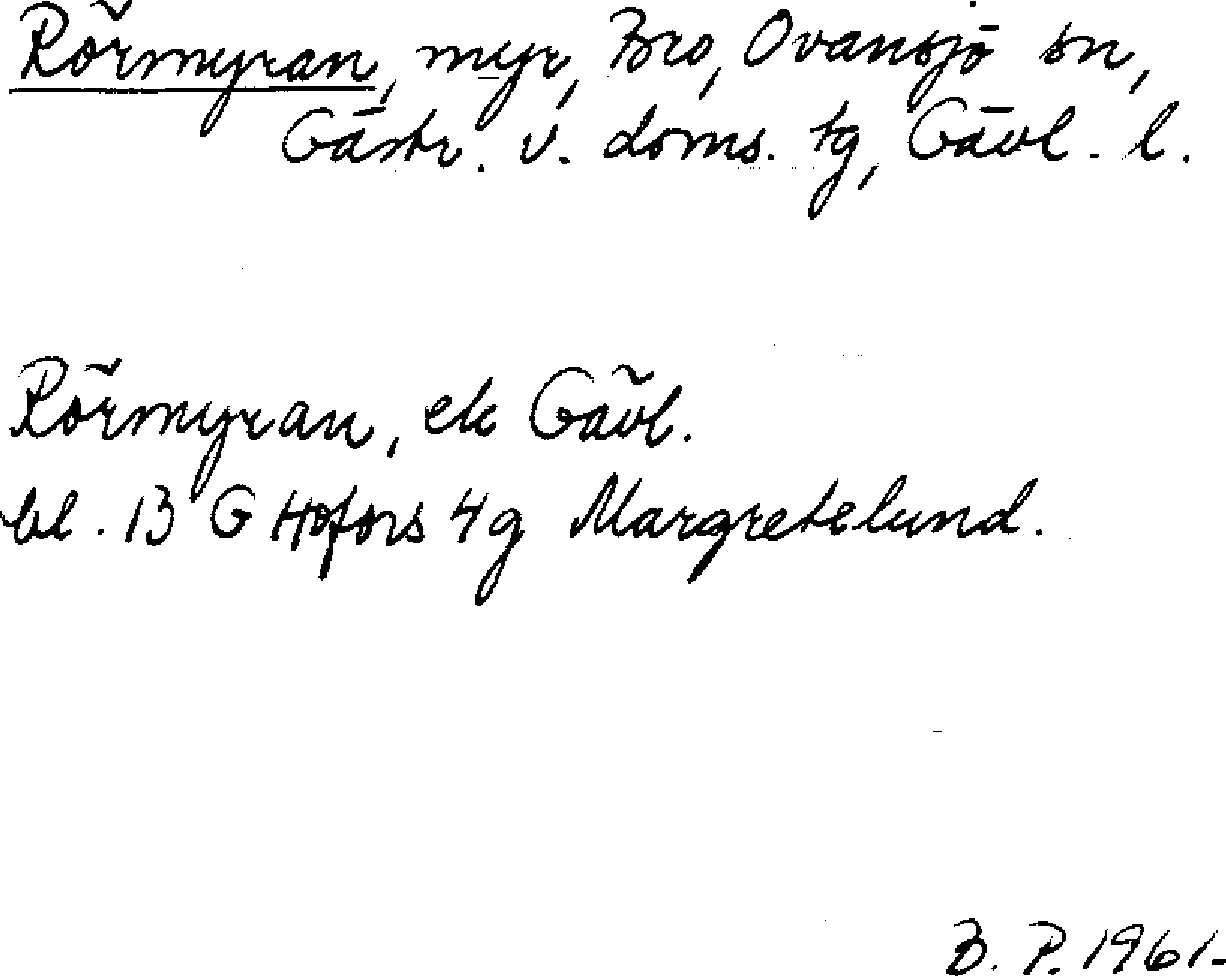 Rörmyran, myr, Bro, Ovansjö sn,
Gästr. v. doms. tg, Gävl. l.
Rörmyran, ek Gävl.
bl. 13 G Hofors 4g Margretelund.
B. P. 1961.